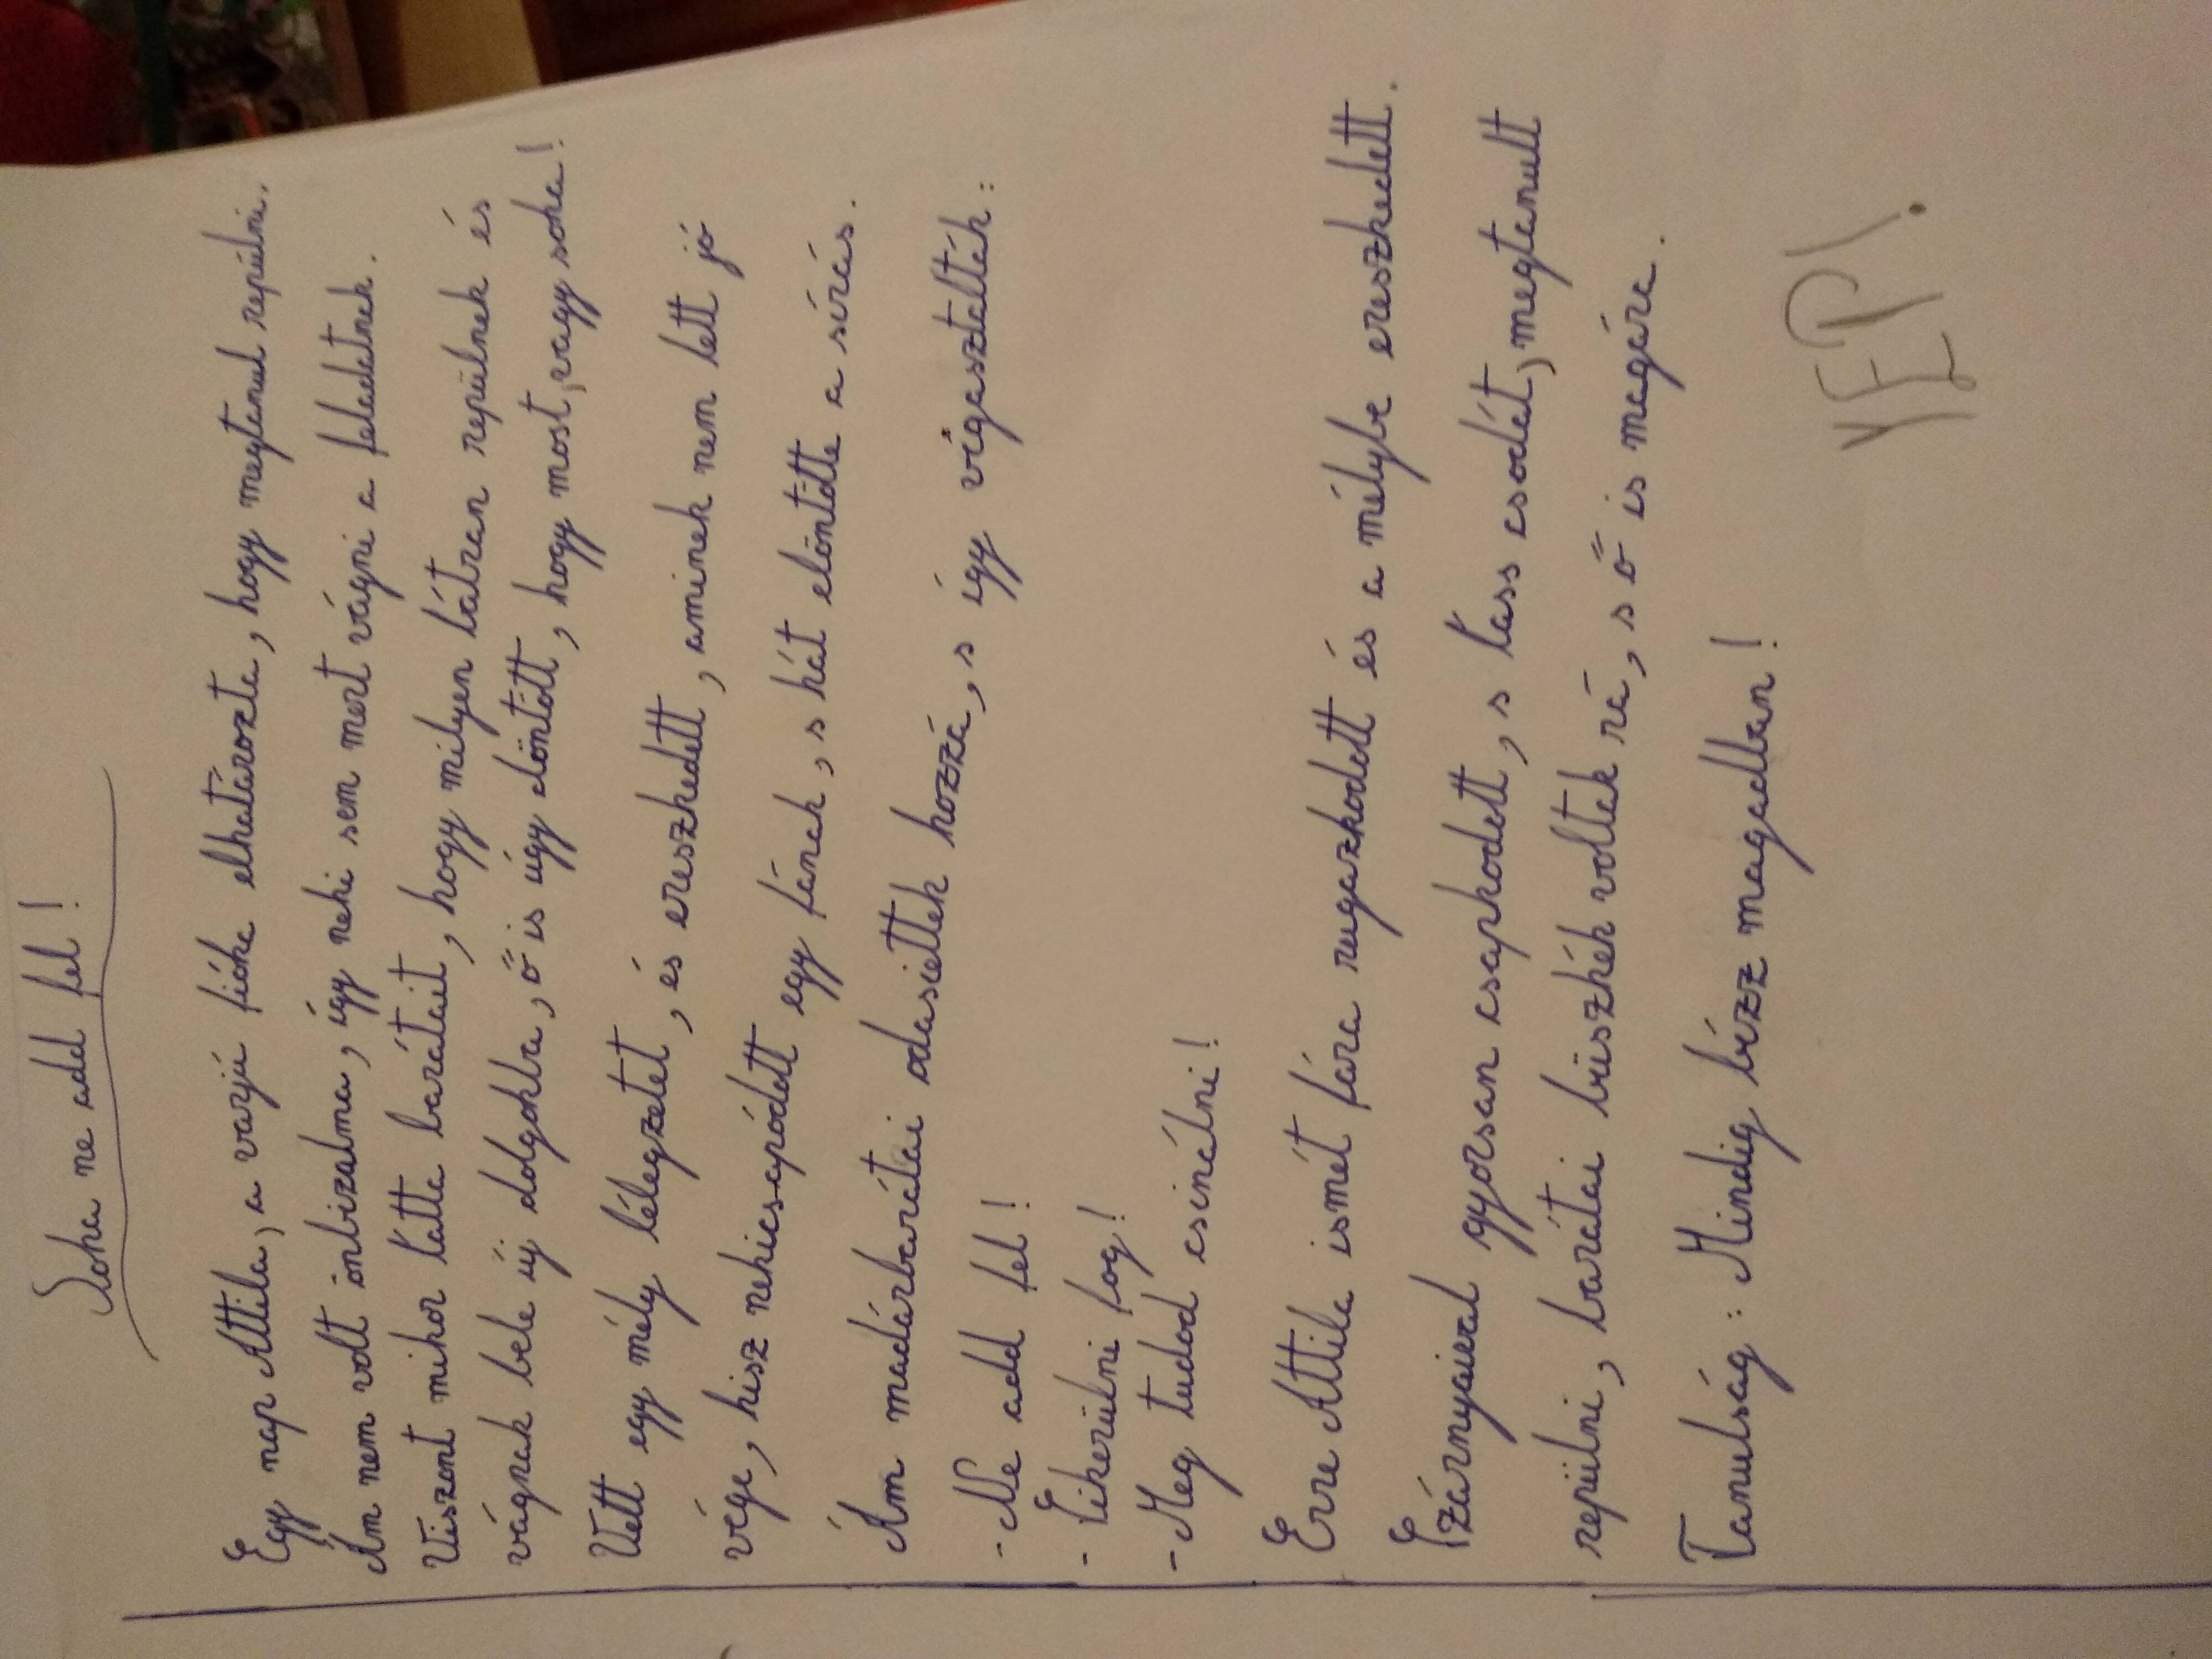 Soha ne add fel!
Egy nap Attila, a varjú fióka elhatározta, hogy megtanul repülni.
Ám nem volt önbizalma, így neki sem mert vágni a feladatnek.
Viszont mikor látta barátait, hogy milyen bátran repülnek és
vágnak bele új dolgokba, ő is úgy döntött, hogy most, vagy soha!
Vett egy mély lélegzetet, és ereszkedett, aminek nem lett jó
vége, hisz nekicsapódott egy fának, s hát elöntötte a sírás.
Ám madárbarátai odasiettek hozzá, s így vigasztalták:
- Ne add fel!
- Sikerülni fog!
- Meg tudod csinálni!
Erre Attila ismét fára rugazkodott és a mélybe ereszkedett.
Szárnyaival gyorsan csapkodott, s láss csodát, megtanult
repülni, barátai büszkék voltak rá, s ő is magára.
Tanulság: Mindig bízz magadban!
YEP!